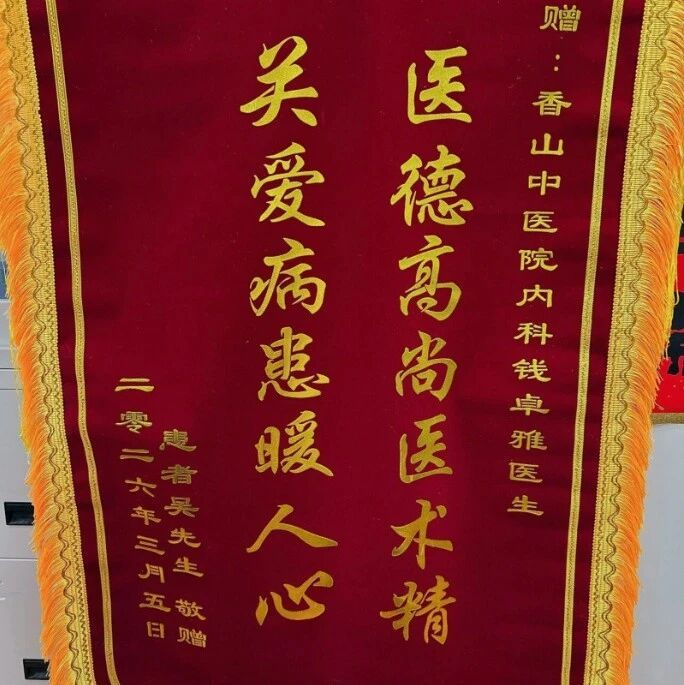 赠：香山中医院内科钱卓雅医生
医德高尚医术精
关爱病患暖人心
患者吴先生 敬赠
二零二六年三月五日